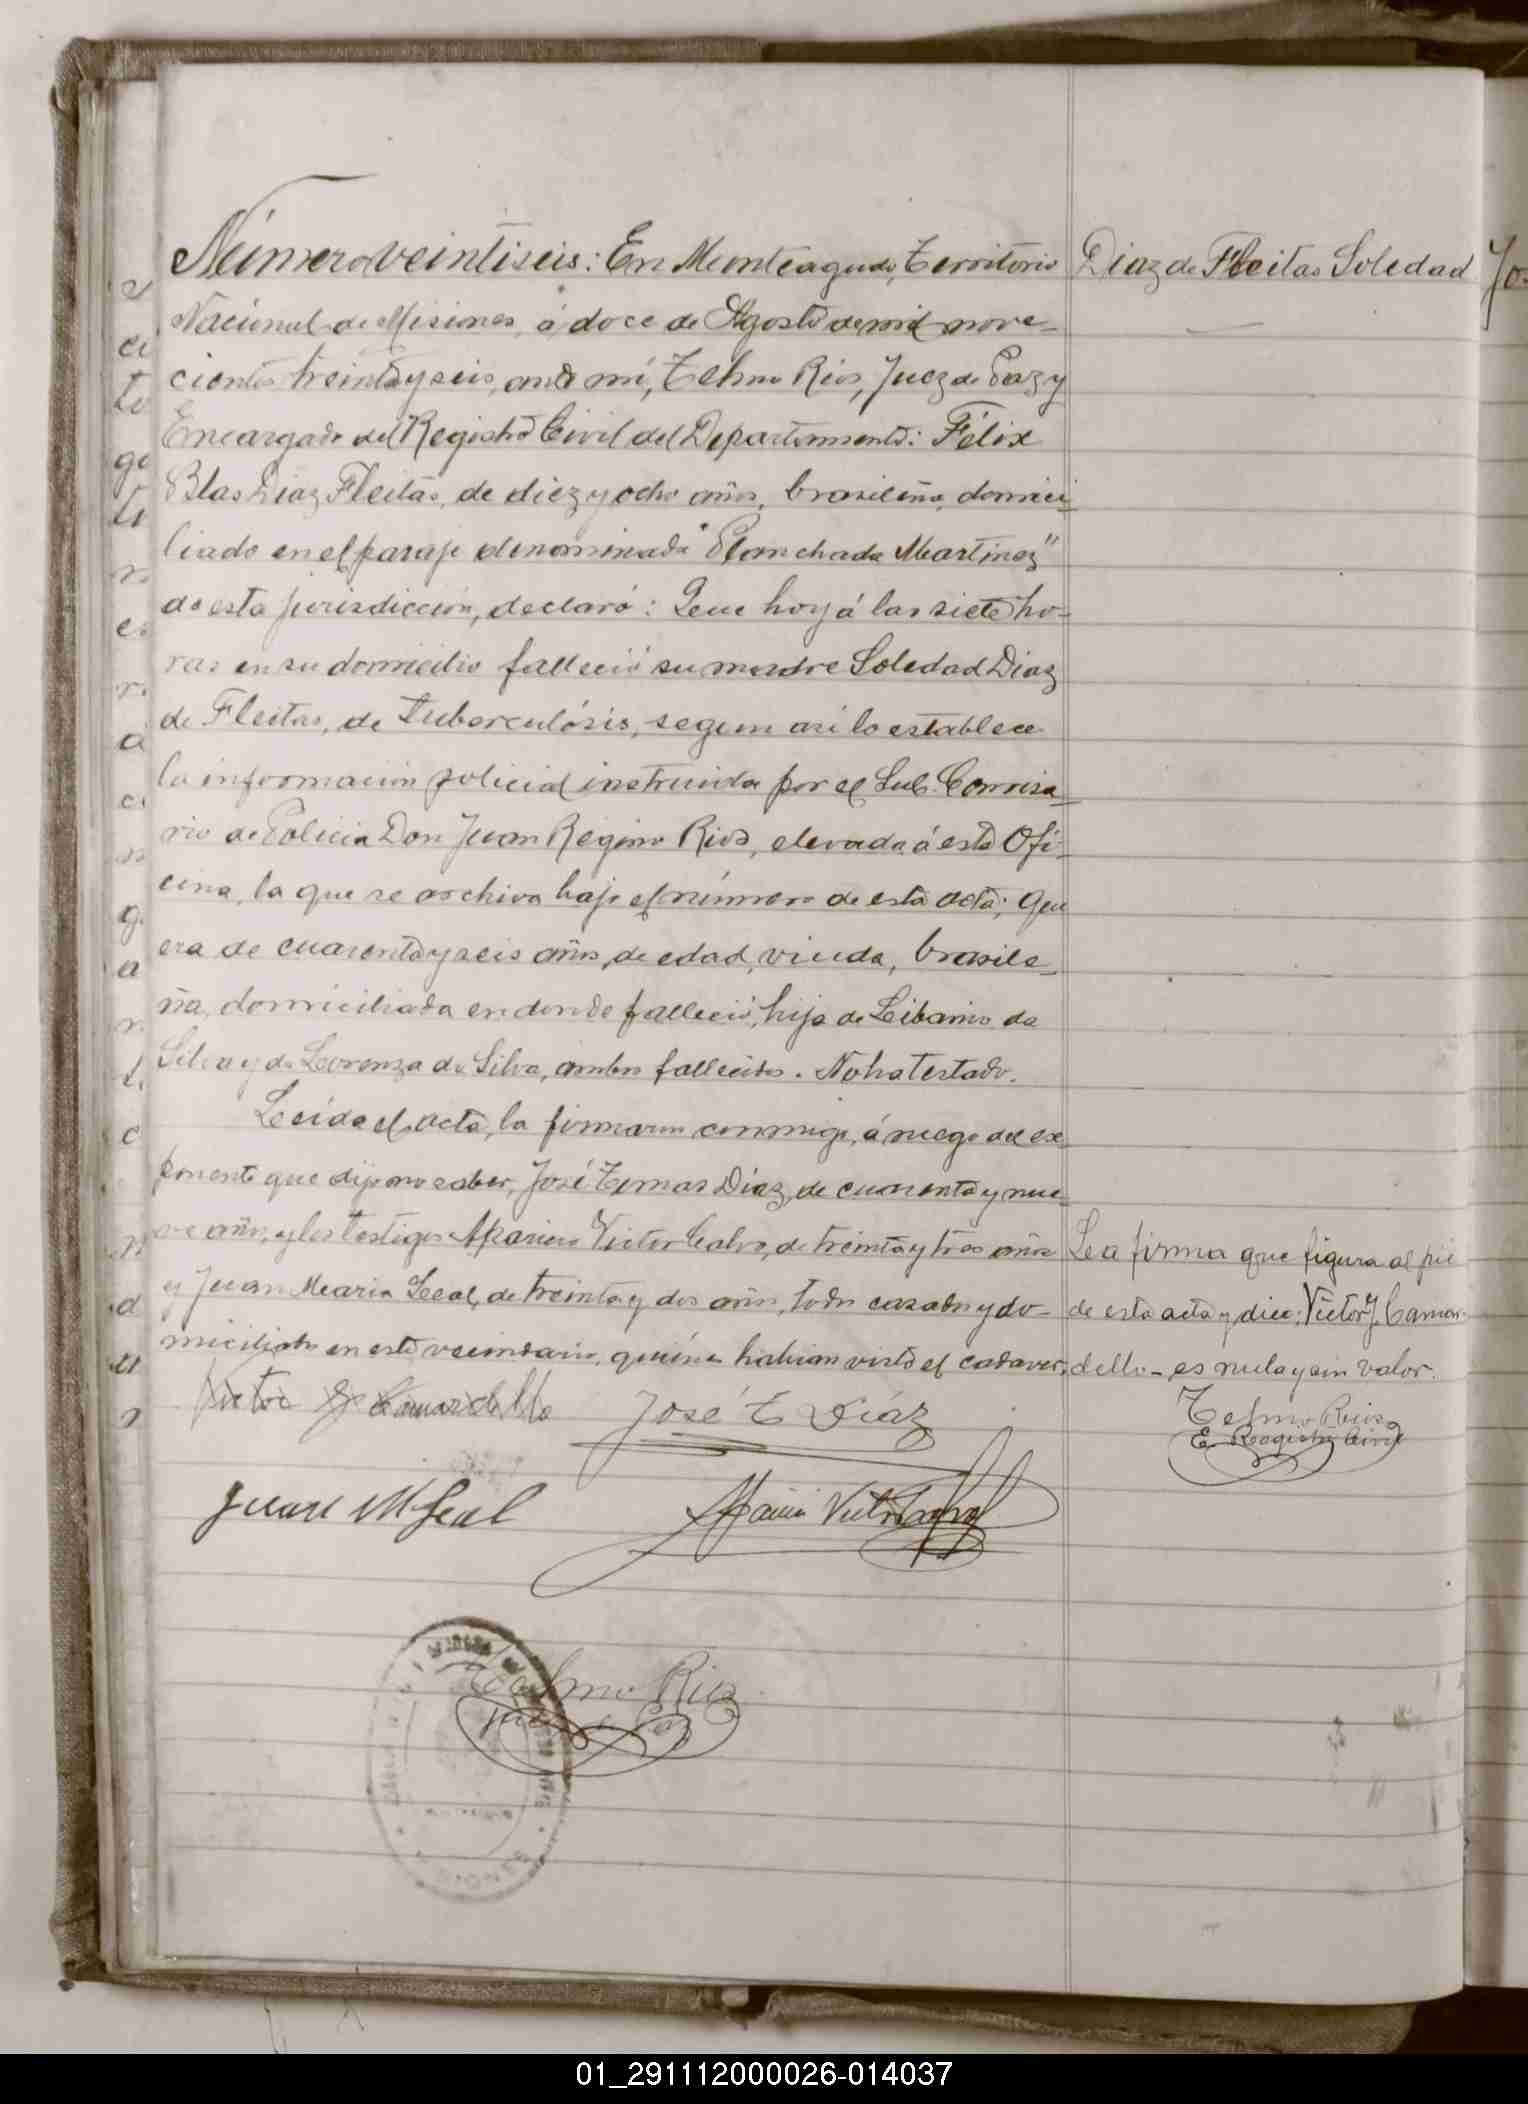 Número veintiseis: En Monteagudo, Territorio
Diaz de Fleitas Soledad
Nacional de Misiones, á doce de Agosto de mil nove-
cientos treinta y seis, ante mí, Telmo Rios, Juez de Paz y
Encargado del Registro Civil del Departamento: Félix
Blas Diaz Fleitas, de diez y ocho años, brasileño, domici-
liado en el paraje denominado "Planchada Martinez"
de esta jurisdicción, declaró: Que hoy á las siete ho-
ras en su domicilio falleció su madre Soledad Diaz
de Fleitas, de tuberculósis, segun asi lo establece
la información policial instruida por el Sub. Comisa-
rio de Policia Don Juan Regino Rios, elevada á esta Ofi-
cina, la que se archiva bajo el número de esta acta; Que
era de cuarenta y seis años, de edad, viuda, brasile-
ña, domiciliada en donde falleció, hija de Libanio da
Silva y de Lorenza da Silva, ambos fallecidos. No ha testado.
Leida el acta, la firmaron conmigo, á ruego del ex-
ponente que dijo no saber, José Tomas Diaz, de cuarenta y nue-
ve años, y los testigos Aparicio Victor Calvo, de treinta y tres años
y Juan Maria Leal, de treinta y dos años, todos casados y do-
miciliados en este vecindario, quiénes habian visto el cadaver.
La firma que figura al pié
de esta acta y dice: Victor J. Camar-
dello - es nula y sin valor.
Telmo Rios
E. Registro Civil
Victor J. Camardello
José T Díaz
Juan M Leal
Aparicio Victor Calvo
Telmo Rios
Juez de Paz
01_291112000026-014037